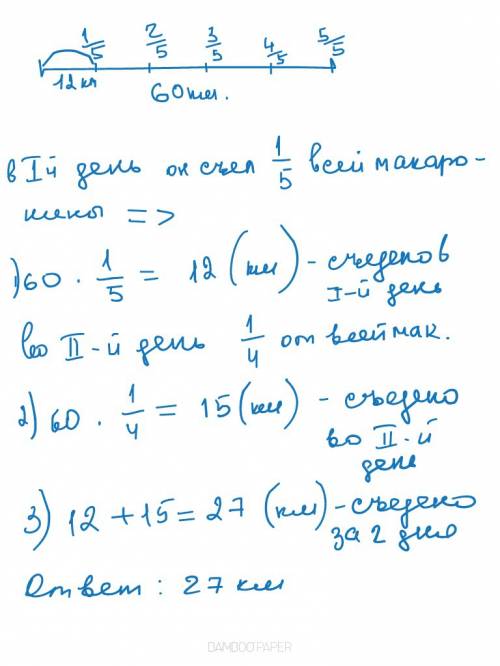 1/5 2/5 3/5 4/5 5/5
12 км
60 км.
в I й день он съел 1/5 всей макаро-
нины =>
1) 60 · 1/5 = 12 (км) - съедено в
I-й день
во II-й день 1/4 от всей мак.
2) 60 · 1/4 = 15 (км) - съедено
во II-й
день
3) 12 + 15 = 27 (км) - съедено
за 2 дня
Ответ : 27 км
BAMBOOPAPER